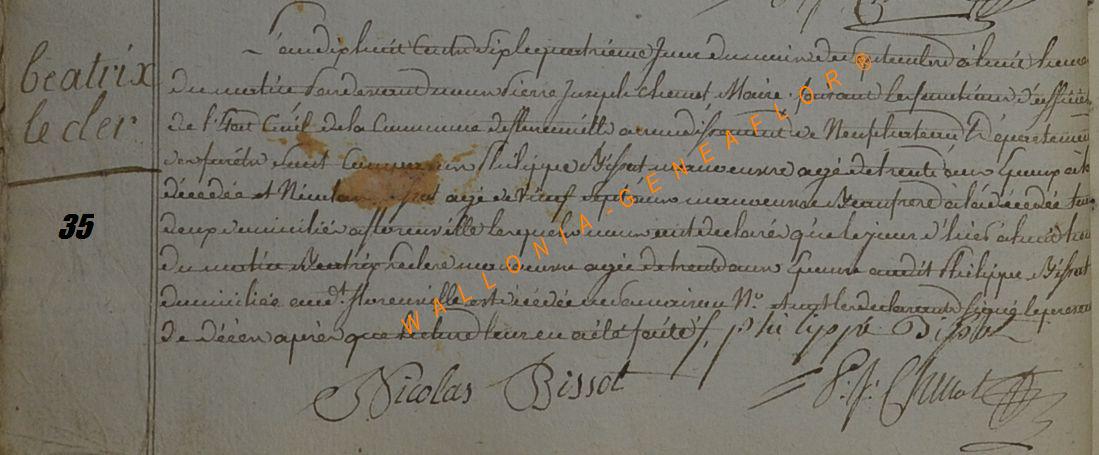 beatrix
le cler
35
L'an dix huit cent dix le quatrieme Jour du mois de Septembre à huit heures
du matin Pardevant nous Pierre Joseph Chenot Maire faisant les fonctions d'officier
de l'Etat Civil de la Commune de florenville arrondissement de Neufchateau, Département
des forêts sont Comparus Philippe Bissot manoeuvre agé de trente ans Epoux à la
décédée et Nicolas agé de neuf manoeuvre Beaufrere à la décédée tous
deux domiciliés a florenville lesquels nous ont déclarés que le jour d'hier à huit heures
du matin Beatrix leclere manoeuvre agée de trente ans Epouse audit Philippe Bissot
domiciliée aud.t florenville est décédée en sa maison N.o et ont les declarants signé le present
de décès après que lecture leur en a été faite, philippe Bissot
Nicolas Bissot
P. J. Chenot
WALLONIA-GENEAFLOR®